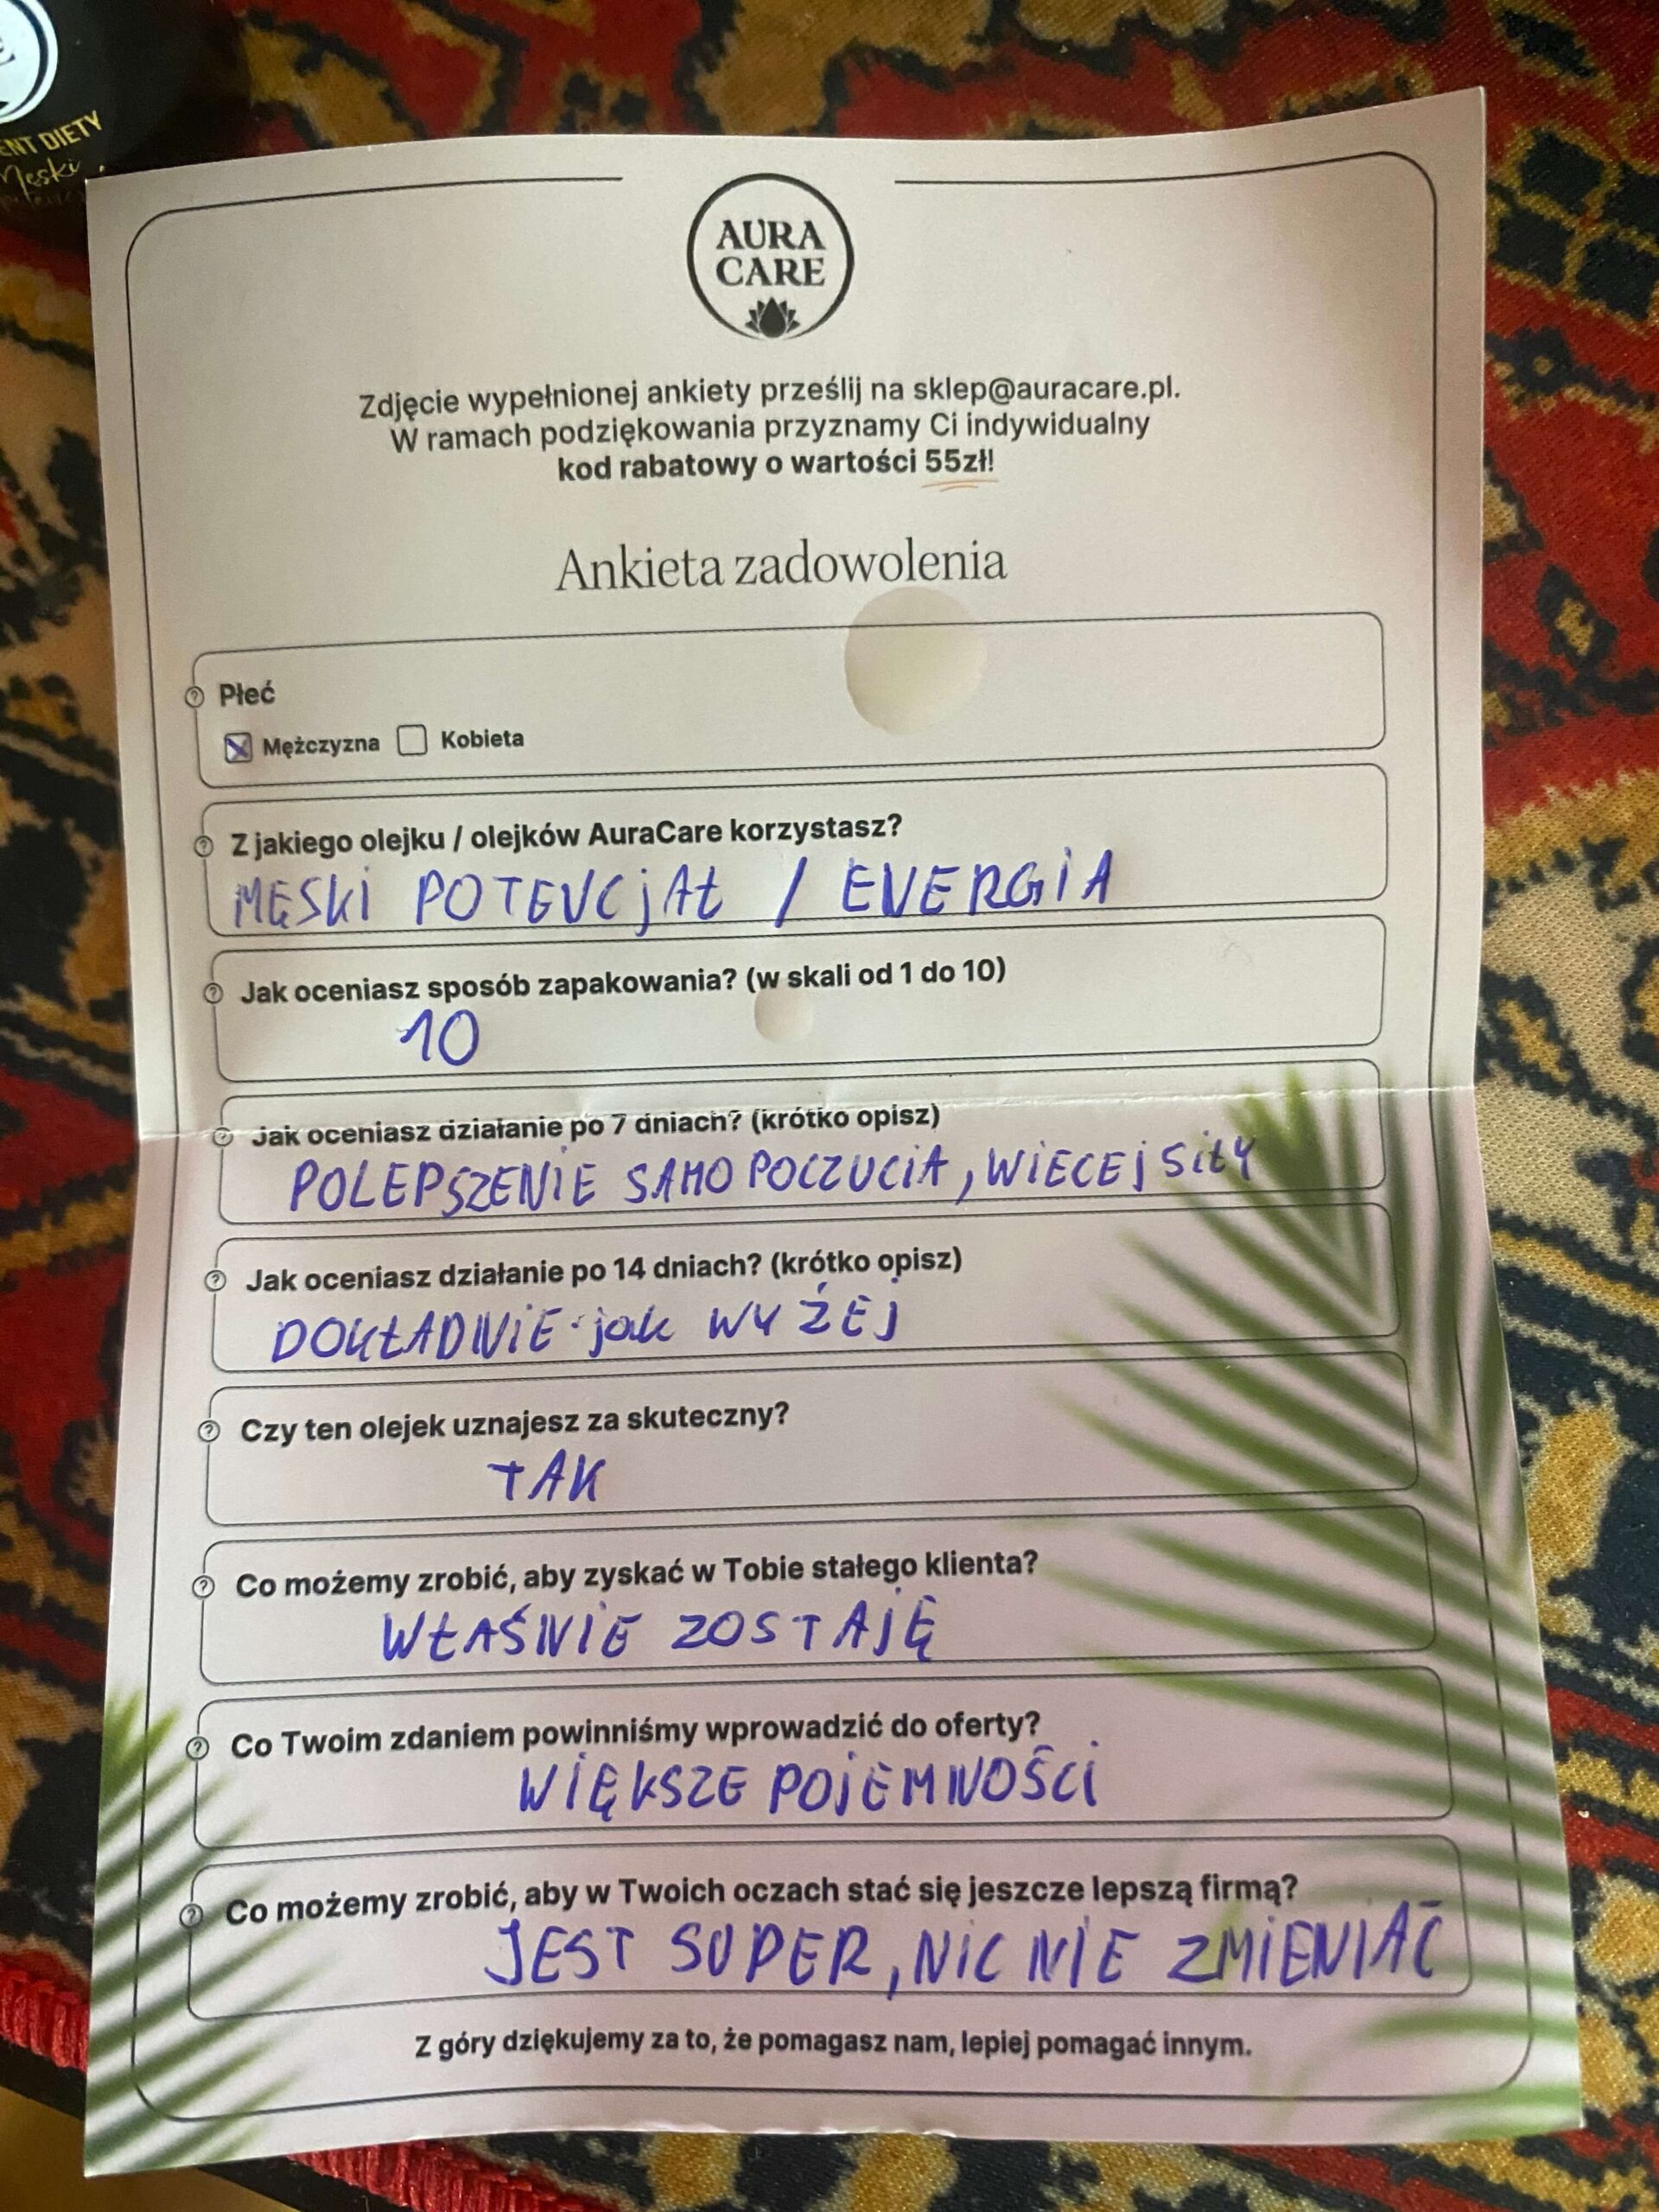 ENT DIETY
Męski
AURA
CARE
Zdjęcie wypełnionej ankiety prześlij na sklep@auracare.pl.
W ramach podziękowania przyznamy Ci indywidualny
kod rabatowy o wartości 55zł!
Ankieta zadowolenia
Płeć
Mężczyzna Kobieta
Z jakiego olejku / olejków AuraCare korzystasz?
MĘSKI POTENCjAŁ / ENERGiA
Jak oceniasz sposób zapakowania? (w skali od 1 do 10)
10
Jak oceniasz działanie po 7 dniach? (krótko opisz)
POLEPSZENIE SAMOPOCZUCiA, WIECEj SiŁY
Jak oceniasz działanie po 14 dniach? (krótko opisz)
DOKŁADNiE jak WYŻEJ
Czy ten olejek uznajesz za skuteczny?
TAK
Co możemy zrobić, aby zyskać w Tobie stałego klienta?
WŁAŚNIE ZOSTAJĘ
Co Twoim zdaniem powinniśmy wprowadzić do oferty?
WIĘKSZE POJEMNOŚCi
Co możemy zrobić, aby w Twoich oczach stać się jeszcze lepszą firmą?
JEST SUPER, NIC NIE ZMIENIAĆ
Z góry dziękujemy za to, że pomagasz nam, lepiej pomagać innym.